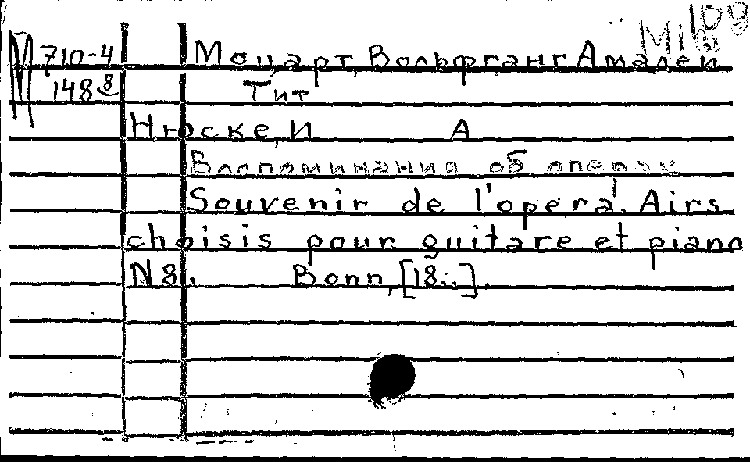 М 710-4 Моцарт, Вольфганг Амадей
148 8 Тит
Нюске, И А
Воспоминания об опере
Souvenir de l'opera. Airs
choisis pour guitare et piano
N 8. Bonn, [18..].